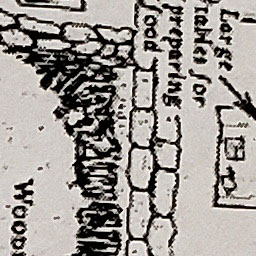 Large
tables for
preparing
food